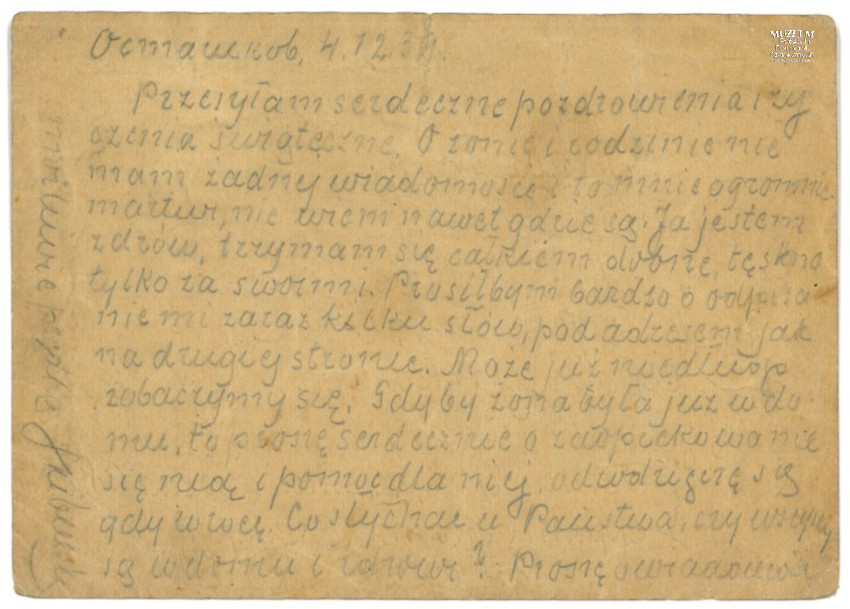 Ocmaшkob, 4.12.39.
Przesyłam serdeczne pozdrowienia i ży
czenia świąteczne. O żonie i rodzinie nie
mam żadnej wiadomości i to mnie ogromnie
martwi, nie wiem nawet gdzie są. Ja jestem
zdrów, trzymam się całkiem dobrze, tęskno
tylko za swoimi. Prosiłbym bardzo o odpisa
nie mi zaraz kilku słów, pod adresem jak
na drugiej stronie. Może już niedługo
zobaczymy się. Gdyby żona była już w do
mu, to proszę serdecznie o zaopiekowanie
się nią i pomoc dla niej, odwdzięczę się
gdy wrócę. Co słychać u Państwa, czy wszyscy
są w domu i zdrowi? Proszę o wiadomość
możliwie szybką
MUZEUM